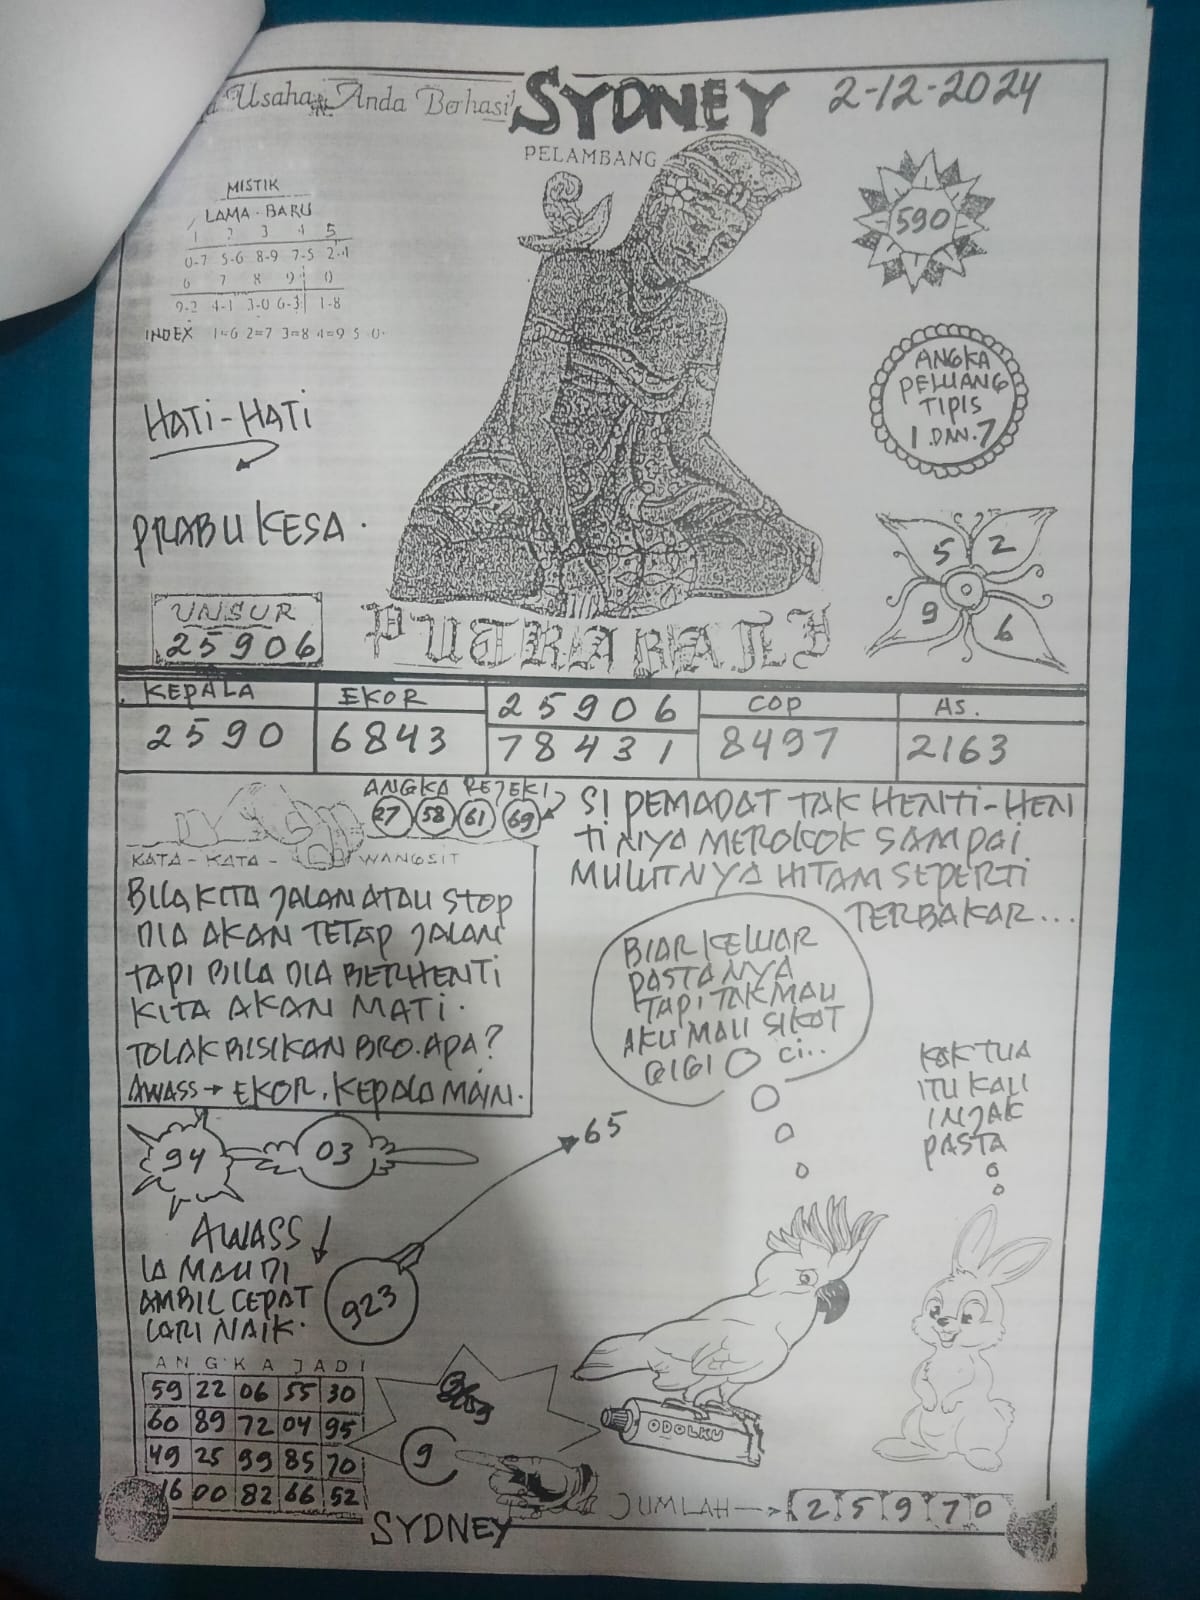 Usaha Anda Berhasil
SYDNEY
2-12-2024
PELAMBANG
MISTIK
LAMA - BARU
1 2 3 4 5
0-7 5-6 8-9 7-5 2-4
6 7 8 9 0
9-2 4-1 3-0 6-3 1-8
INDEX 1=6 2=7 3=8 4=9 5 0
590
ANGKA
PELUANG
TIPIS
1 DAN 7
HATI-HATI
PRABU KESA.
5 2
9 6
UNSUR
25906
PUTRA BALI
KEPALA EKOR 25906 COP AS.
2590 6843 78431 8497 2163
ANGKA REJEKI
27 58 61 69
KATA - KATA - WANGSIT
BILA KITA JALAN ATAU STOP
DIA AKAN TETAP JALAN
TAPI BILA DIA BERHENTI
KITA AKAN MATI.
TOLAK BISIKAN BRO. APA?
AWASS → EKOR. KEPALA MAIN.
SI PEMADAT TAK HENTI-HEN
TINYA MEROKOK SAMPAI
MULUTNYA HITAM SEPERTI
TERBAKAR...
BIAR KELUAR
PASTANYA
TAPI TAK MAU
AKU MAU SIKAT
GIGI Ci..
KAKTUA
ITU KALI
INJAK
PASTA
94 03
65
AWASS
IA MAU DI
AMBIL CEPAT
LARI NAIK.
923
ANGKA JADI
59 22 06 55 30
60 89 72 04 95
49 25 99 85 70
16 00 82 66 52
9
ODOLKU
JUMLAH → 2 5 9 7 0
SYDNEY